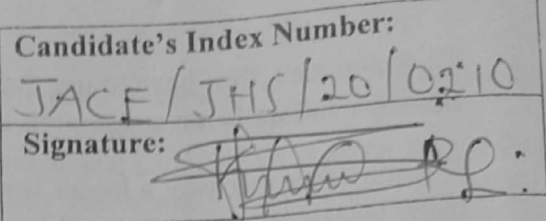 Candidate's Index Number:
JACE/JHS/20/0210
Signature: